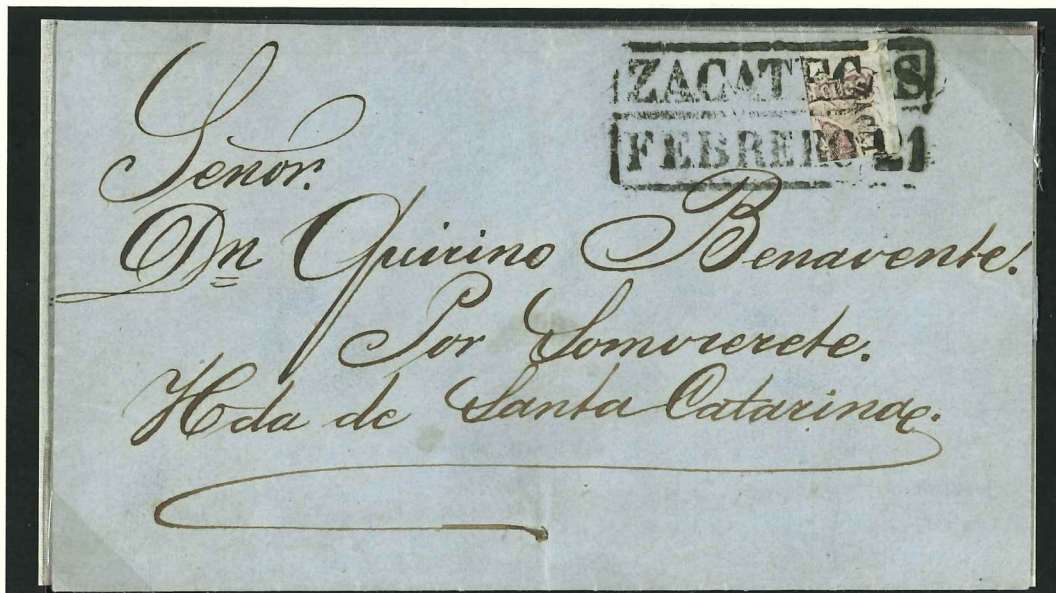 ZACATECAS
FEBRERO 21
Señor.
Dn Quirino Benavente.
Por Somvrerete.
Hda de Santa Catarina.